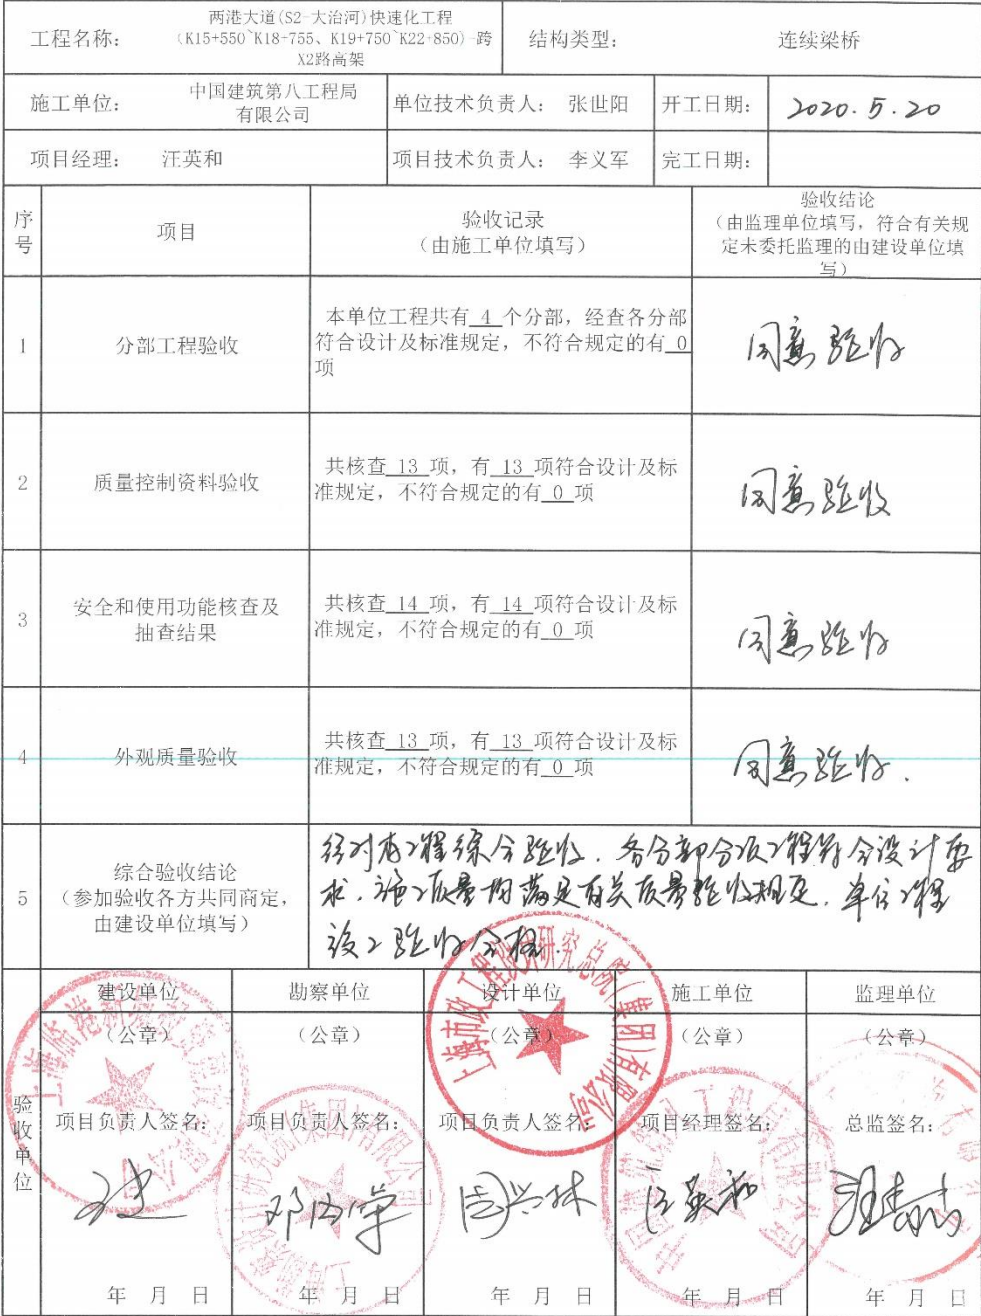 两港大道(S2-大治河)快速化工程
工程名称：
(K15+550~K18+755、K19+750~K22+850)-跨
X2路高架
结构类型：
连续梁桥
施工单位：
中国建筑第八工程局
有限公司
单位技术负责人： 张世阳
开工日期：
2020.5.20
项目经理： 汪英和
项目技术负责人： 李义军
完工日期：
序
号
项目
验收记录
（由施工单位填写）
验收结论
（由监理单位填写，符合有关规
定未委托监理的由建设单位填
写）
1
分部工程验收
本单位工程共有 4 个分部，经查各分部
符合设计及标准规定，不符合规定的有 0
项
同意验收
2
质量控制资料验收
共核查 13 项，有 13 项符合设计及标
准规定，不符合规定的有 0 项
同意验收
3
安全和使用功能核查及
抽查结果
共核查 14 项，有 14 项符合设计及标
准规定，不符合规定的有 0 项
同意验收
4
外观质量验收
共核查 13 项，有 13 项符合设计及标
准规定，不符合规定的有 0 项
同意验收.
5
综合验收结论
（参加验收各方共同商定，
由建设单位填写）
经对本工程综合验收，各分部分项工程符合设计要
求，施工质量均满足有关质量验收规定，单位工程
竣工验收合格.
验
收
单
位
建设单位
（公章）
项目负责人签名：
年 月 日
勘察单位
（公章）
项目负责人签名：
年 月 日
设计单位
（公章）
项目负责人签名：
周兴林
年 月 日
上海市政工程设计研究总院(集团)有限公司
施工单位
（公章）
项目经理签名：
汪英和
年 月 日
监理单位
（公章）
总监签名：
年 月 日